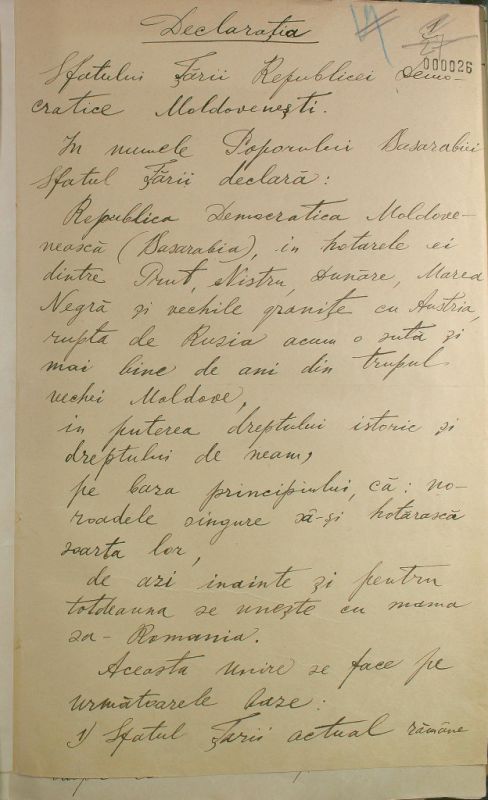 Declarația
000026
Sfatului Țării Republicei Demo-
cratice Moldovenești.
In numele Poporului Basarabiei
Sfatul Țării declară:
Republica Democratica Moldove-
nească (Basarabia), in hotarele ei
dintre Prut, Nistru, Dunăre, Marea
Negră și vechile granițe cu Austria,
ruptă de Rusia acum o sută și
mai bine de ani din trupul
vechei Moldove,
in puterea dreptului istoric și
dreptului de neam,
pe baza principiului, că: no-
roadele singure să-și hotărască
soarta lor,
de azi inainte și pentru
totdeauna se unește cu mama
sa - Romania.
Aceasta Unire se face pe
următoarele baze:
1) Sfatul Țării actual rămâne